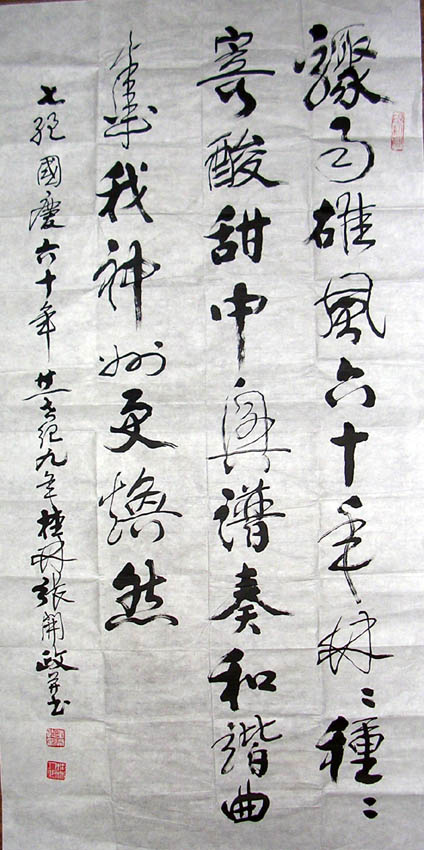 驟雨雄風六十年林〻種〻
寄酸甜中興譜奏和諧曲
我神州更煥然
七絕國慶六十年廿一世紀九年桂林張開政并书